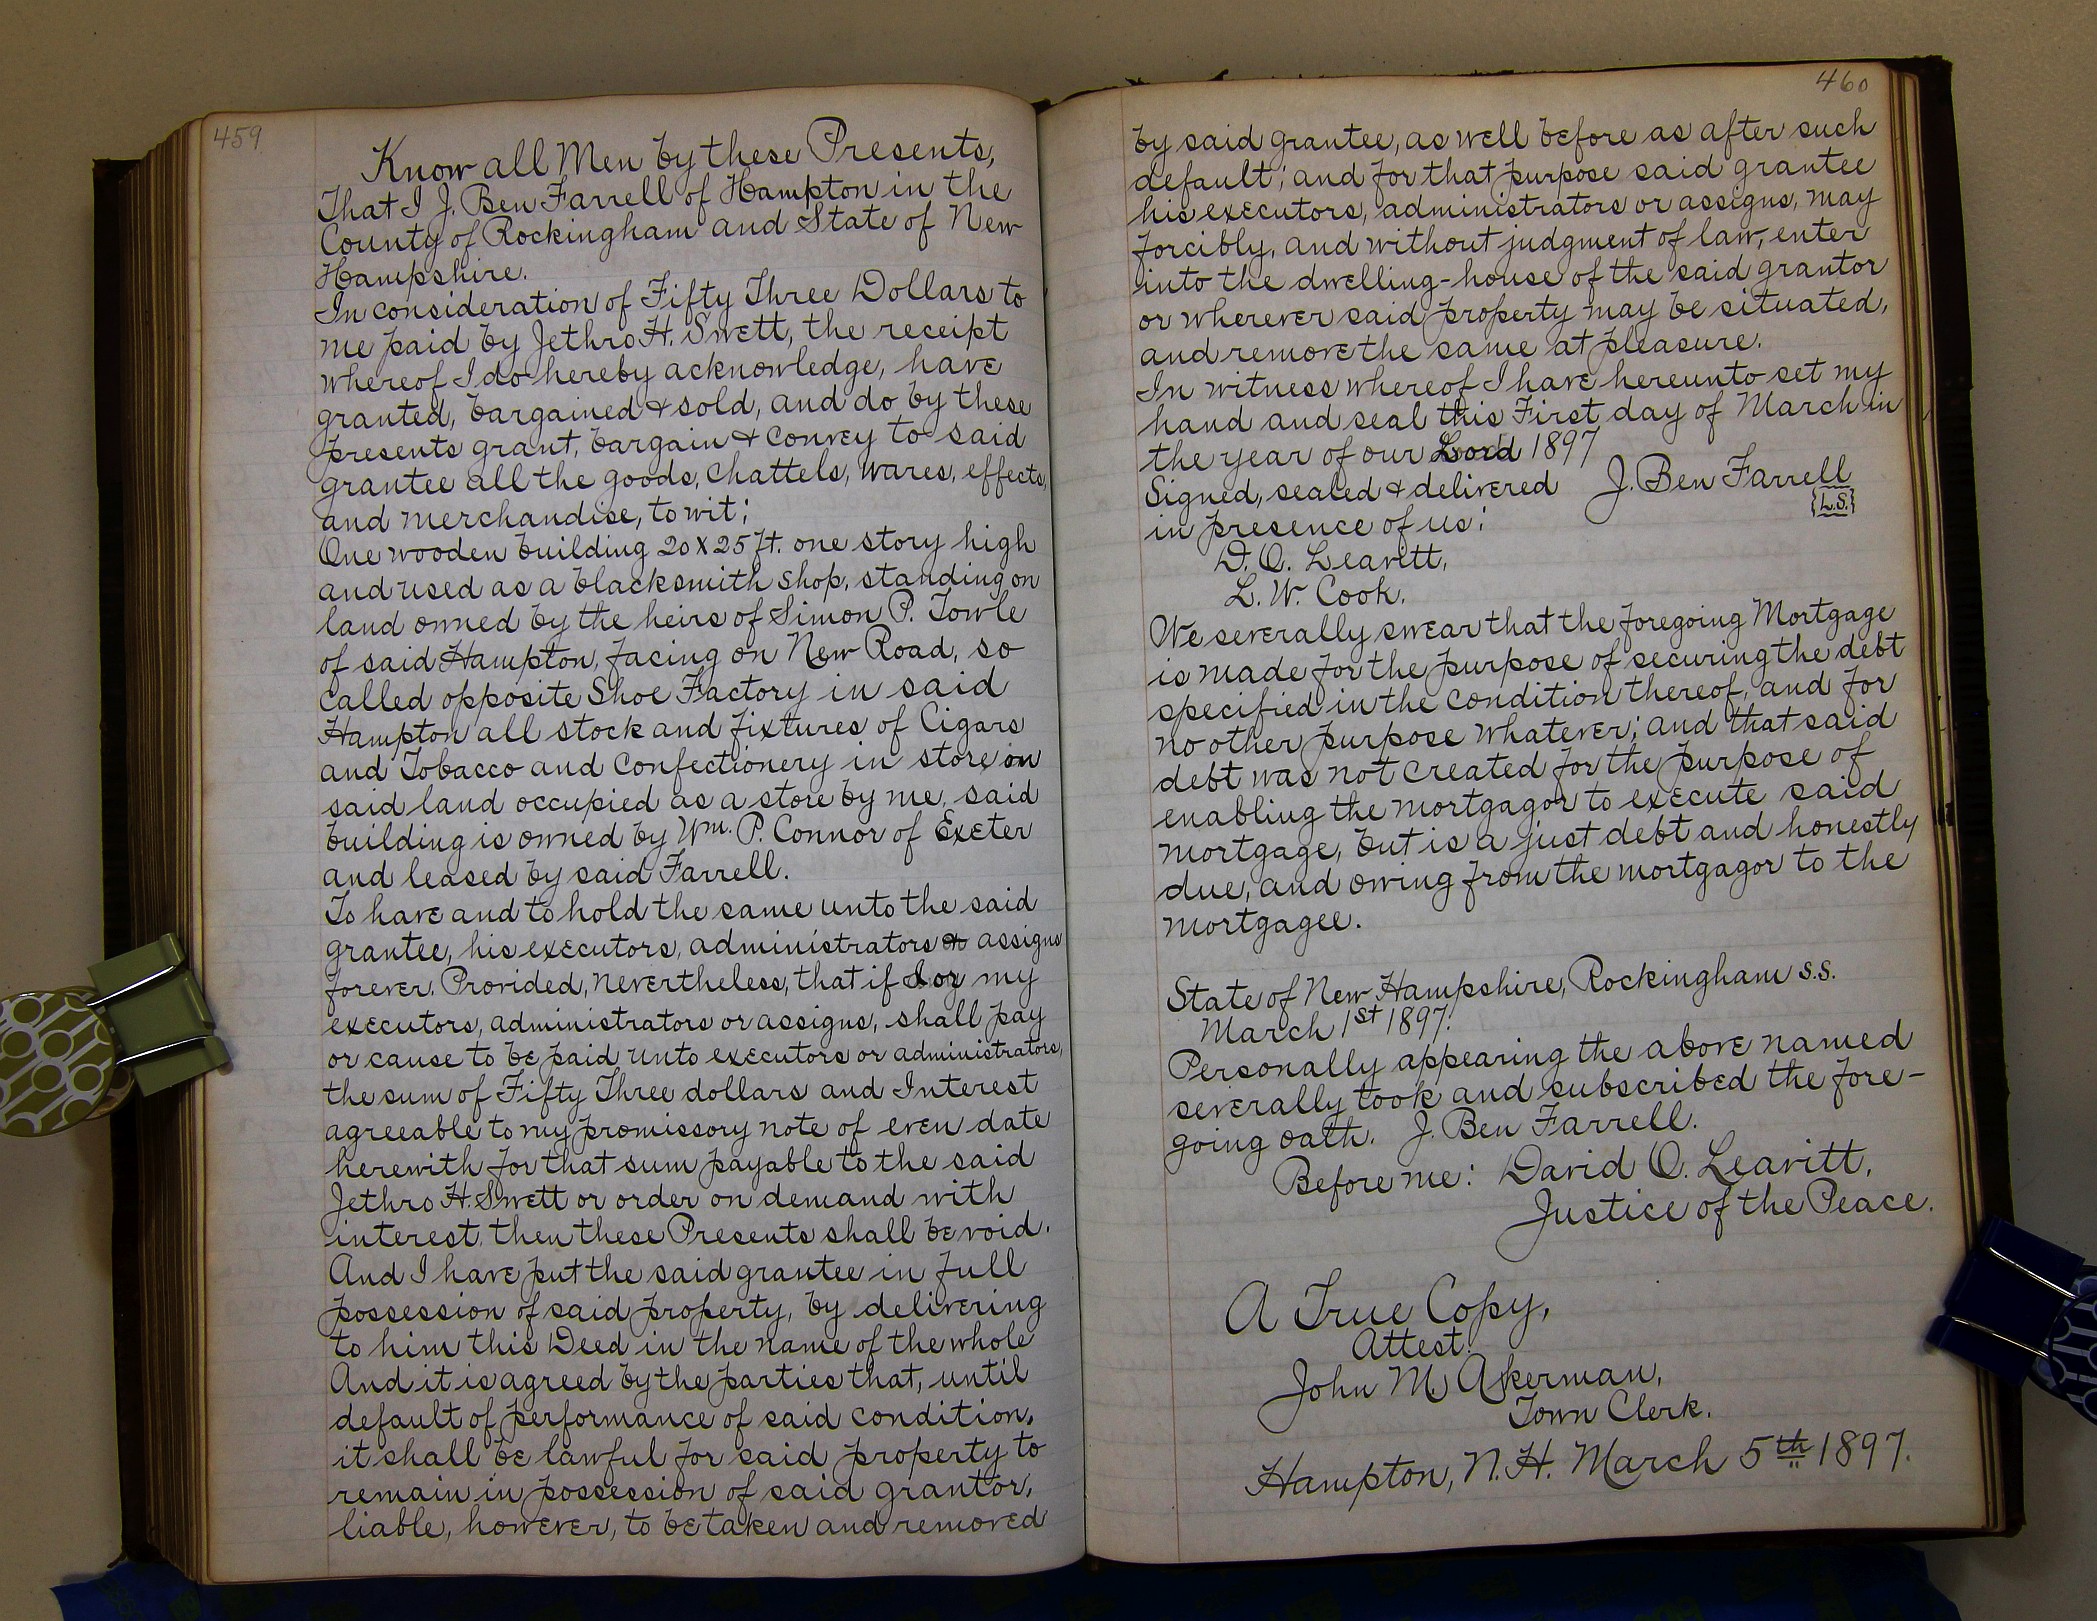 459
Know all Men by these Presents,
That I J. Ben Farrell of Hampton in the
County of Rockingham and State of New
Hampshire.
In consideration of Fifty Three Dollars to
me paid by Jethro H. Swett, the receipt
whereof I do hereby acknowledge, have
granted, bargained & sold, and do by these
presents grant, bargain & convey to said
grantee all the goods, chattels, wares, effects,
and merchandise, to wit;
One wooden building 20 X 25 ft. one story high
and used as a blacksmith shop, standing on
land owned by the heirs of Simon P. Towle
of said Hampton, facing on New Road, so
called opposite Shoe Factory in said
Hampton all stock and fixtures of Cigars
and Tobacco and Confectionery in store on
said land occupied as a store by me, said
building is owned by Wm. P. Connor of Exeter
and leased by said Farrell.
To have and to hold the same unto the said
grantee, his executors, administrators or assigns
forever. Provided, nevertheless, that if I or my
executors, administrators or assigns, shall pay
or cause to be paid unto executors or administrators,
the sum of Fifty Three dollars and Interest
agreeable to my promissory note of even date
herewith for that sum payable to the said
Jethro H. Swett or order on demand with
interest, then these Presents shall be void.
And I have put the said grantee in full
possession of said property, by delivering
to him this Deed in the name of the whole
And it is agreed by the parties that, until
default of performance of said condition,
it shall be lawful for said property to
remain in possession of said grantor,
liable, however, to be taken and removed
460
by said grantee, as well before as after such
default; and for that purpose said grantee
his executors, administrators or assigns, may
forcibly, and without judgment of law, enter
into the dwelling-house of the said grantor
or wherever said property may be situated,
and remove the same at pleasure.
In witness whereof I have hereunto set my
hand and seal this First day of March in
the year of our Lord 1897
Signed, sealed & delivered J. Ben Farrell
{L.S.}
in presence of us:
D. O. Leavitt,
L. W. Cook.
We severally swear that the foregoing Mortgage
is made for the purpose of securing the debt
specified in the condition thereof, and for
no other purpose whatever; and that said
debt was not created for the purpose of
enabling the mortgagor to execute said
mortgage, but is a just debt and honestly
due, and owing from the mortgagor to the
mortgagee.
State of New Hampshire, Rockingham s.s.
March 1st 1897.
Personally appearing the above named
severally took and subscribed the fore-
going oath. J. Ben Farrell.
Before me: David O. Leavitt,
Justice of the Peace.
A True Copy,
Attest:
John M. Akerman,
Town Clerk.
Hampton, N.H. March 5th 1897.